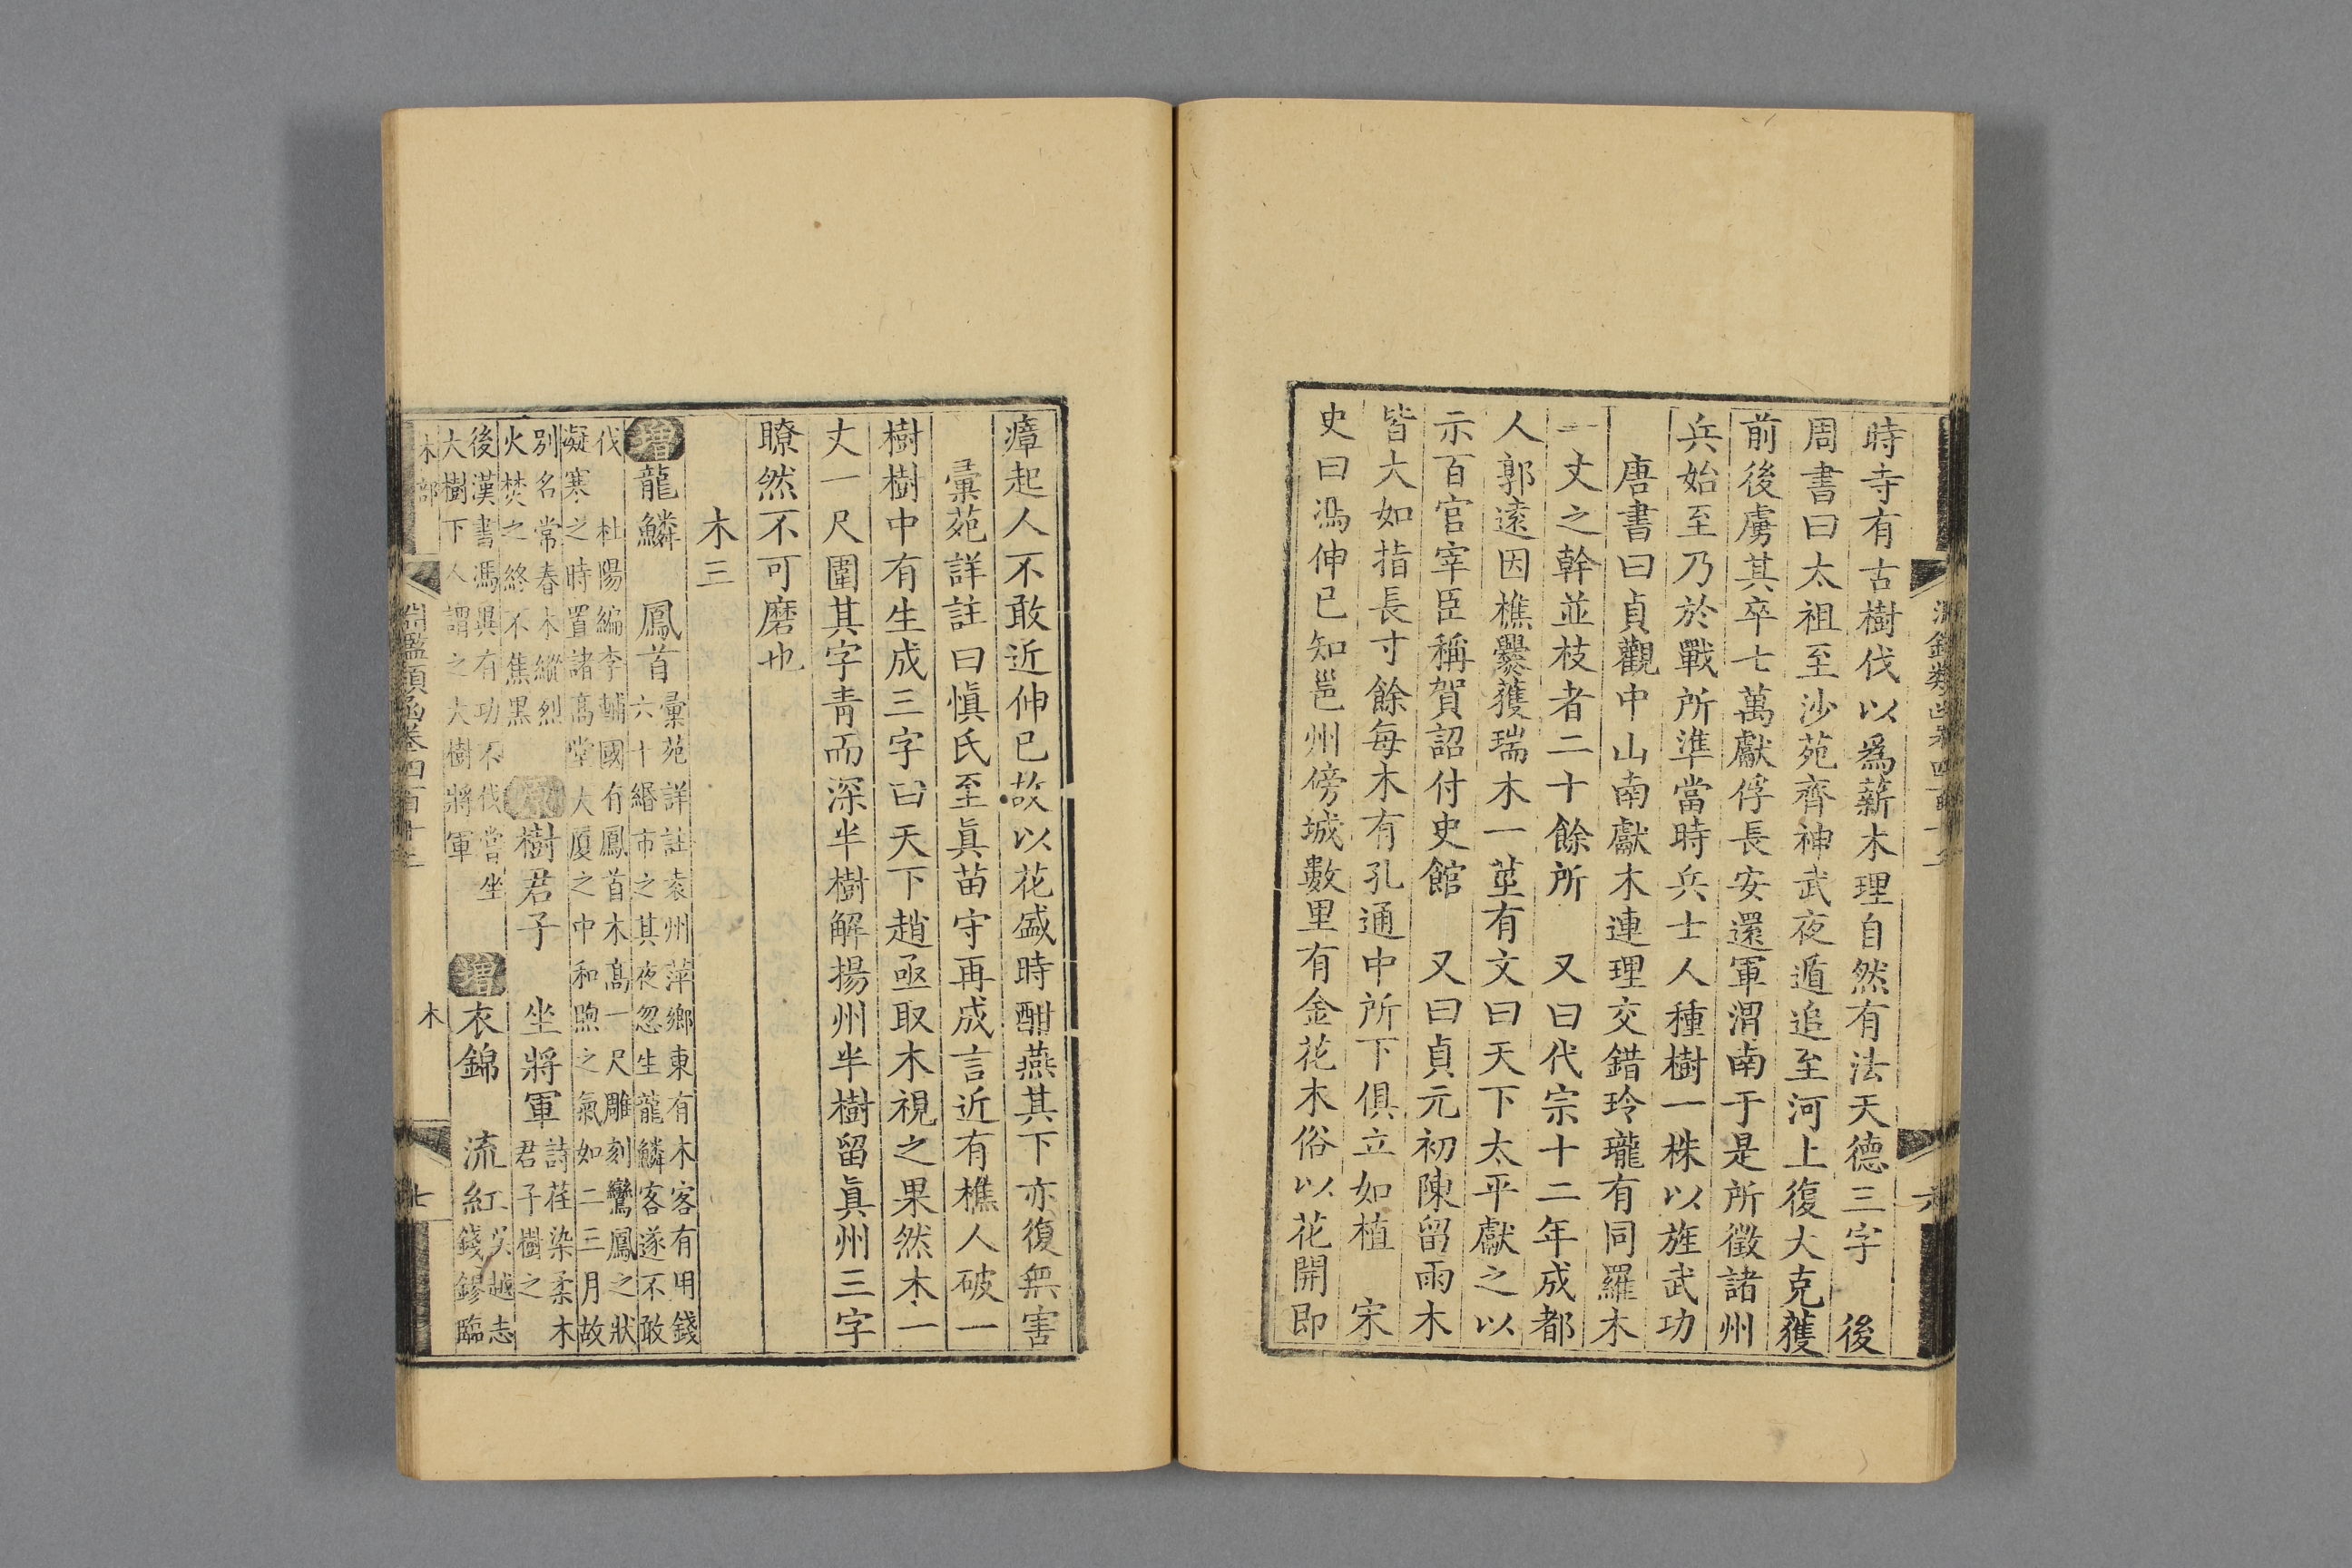 時寺有古樹伐以爲薪木理自然有法天德三字　後
周書曰太祖至沙苑齊神武夜遁追至河上復大克獲
前後虜其卒七萬獻俘長安還軍渭南于是所徵諸州
兵始至乃於戰所準當時兵士人種樹一株以旌武功
唐書曰貞觀中山南獻木連理交錯玲瓏有同羅木
一丈之幹並枝者二十餘所　又曰代宗十二年成都
人郭遠因樵爨獲瑞木一莖有文曰天下太平獻之以
示百官宰臣稱賀詔付史館　又曰貞元初陳留雨木
皆大如指長寸餘每木有孔通中所下俱立如植　宋
史曰馮伸已知邕州傍城數里有金花木俗以花開即
六
瘴起人不敢近伸已故以花盛時酣燕其下亦復無害
彙苑詳註曰愼氏至眞苗守再成言近有樵人破一
樹樹中有生成三字曰天下趙亟取木視之果然木一
丈一尺圍其字靑而深半樹解揚州半樹留眞州三字
瞭然不可磨也
木三
增龍鱗　鳳首彙苑詳註袁州萍鄉東有木客有用錢
六十緡市之其夜忽生龍鱗客遂不敢
伐　杜陽編李輔國有鳳首木高一尺雕刻鸞鳳之狀
凝寒之時置諸高堂大廈之中和煦之氣如二三月故
別名常春木縱烈
火焚之終不焦黑　原樹君子　坐將軍詩荏染柔木
君子樹之
後漢書馮異有功不伐嘗坐
大樹下人謂之大樹將軍　增衣錦　流紅吳越志
錢鏐臨
木部　淵鑑類函卷四百十五　木　七